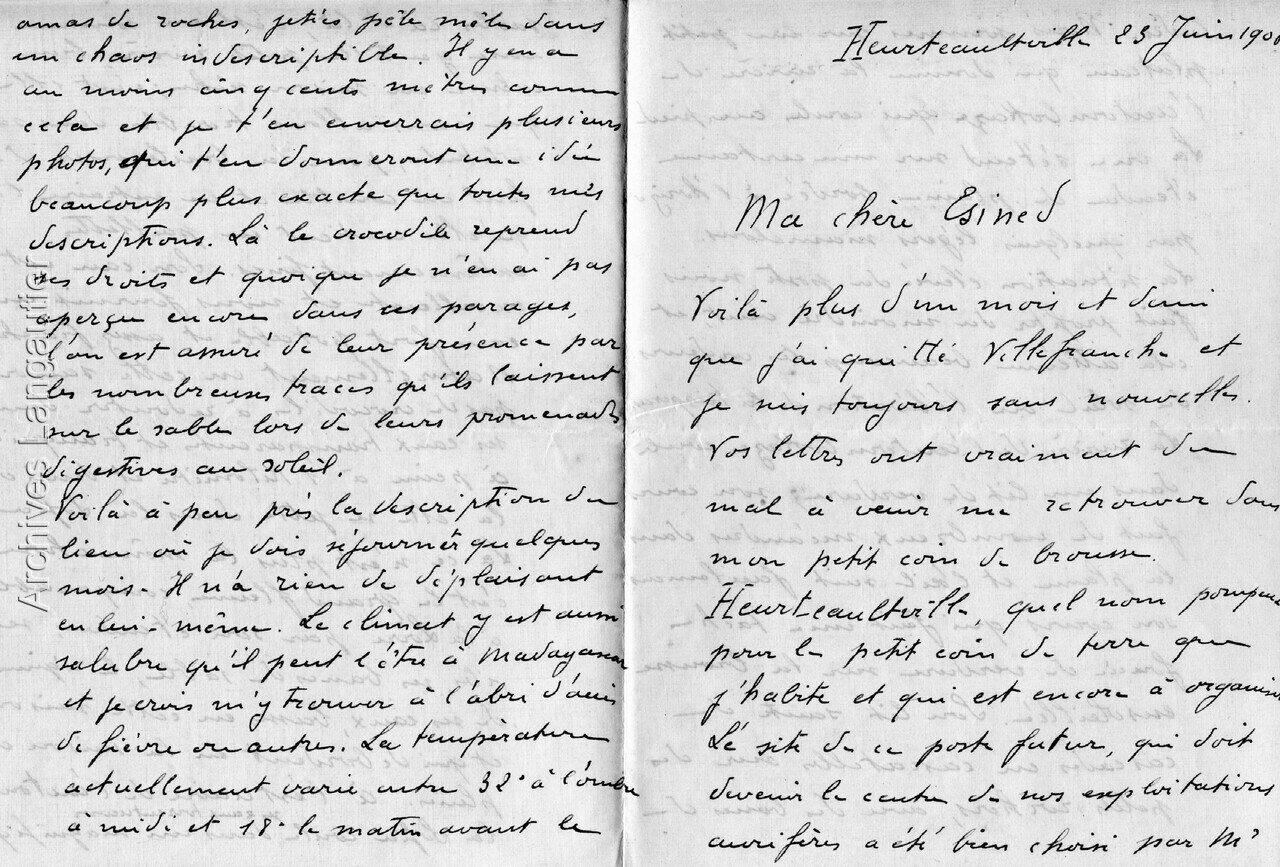 amas de roches, jetées pêle mêle dans
un chaos indescriptible. Il y en a
au moins cinq cents mètres comme
cela et je t'en enverrais plusieurs
photos, qui t'en donneront une idée
beaucoup plus exacte que toutes mes
descriptions. Là le crocodile reprend
ses droits et quoique je n'en ai pas
aperçu encore dans ces parages,
l'on est assuré de leur présence par
les nombreuses traces qu'ils laissent
sur le sable lors de leurs promenades
digestives au soleil.
Voilà à peu près la description du
lieu où je dois séjourner quelques
mois. Il n'a rien de déplaisant
en lui-même. Le climat y est aussi
salubre qu'il peut l'être à Madagascar
et je crois m'y trouver à l'abri
de fièvre ou autres. La température
actuellement varie entre 32° à l'ombre
à midi et 18° le matin avant le
Heurteaultville 23 Juin 190
Ma chère Esined
Voilà plus d'un mois et demi
que j'ai quitté Villefranche et
je suis toujours sans nouvelles.
Vos lettres ont vraiment du
mal à venir me retrouver dans
mon petit coin de brousse.
Heurteaultville, quel nom pompeux
pour le petit coin de terre que
j'habite et qui est encore à organiser
Le site de ce poste futur, qui doit
devenir le centre de nos exploitations
aurifères a été bien choisi par Mr
Archives Langautier